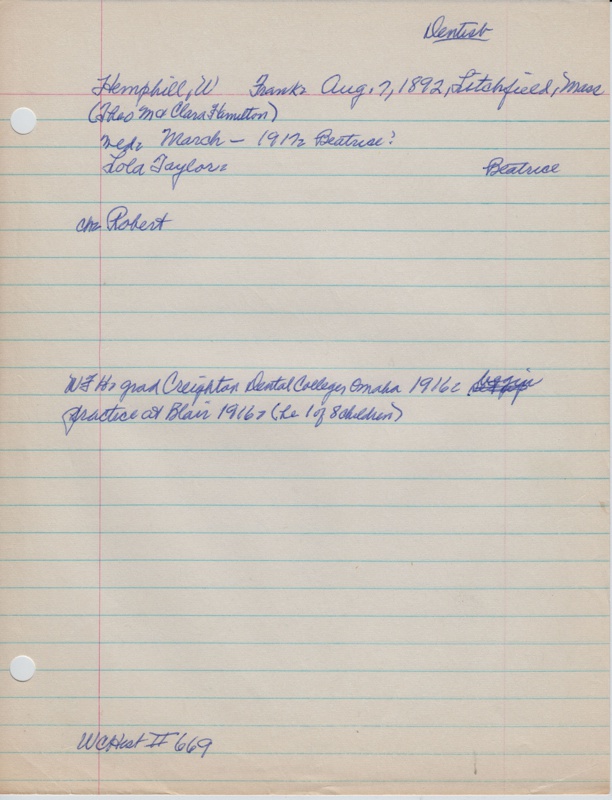 Dentist
Hemphill, W Frank, Aug. 7, 1892, Litchfield, Mass
(Theo M & Clara Hamilton)
med, March - 1917, Beatrice:
Lola Taylor, Beatrice
ch: Robert
WFH, grad Creighton Dental College, Omaha 1916
practice at Blair 1916, (he 1 of 8 children)
WCHist II 669